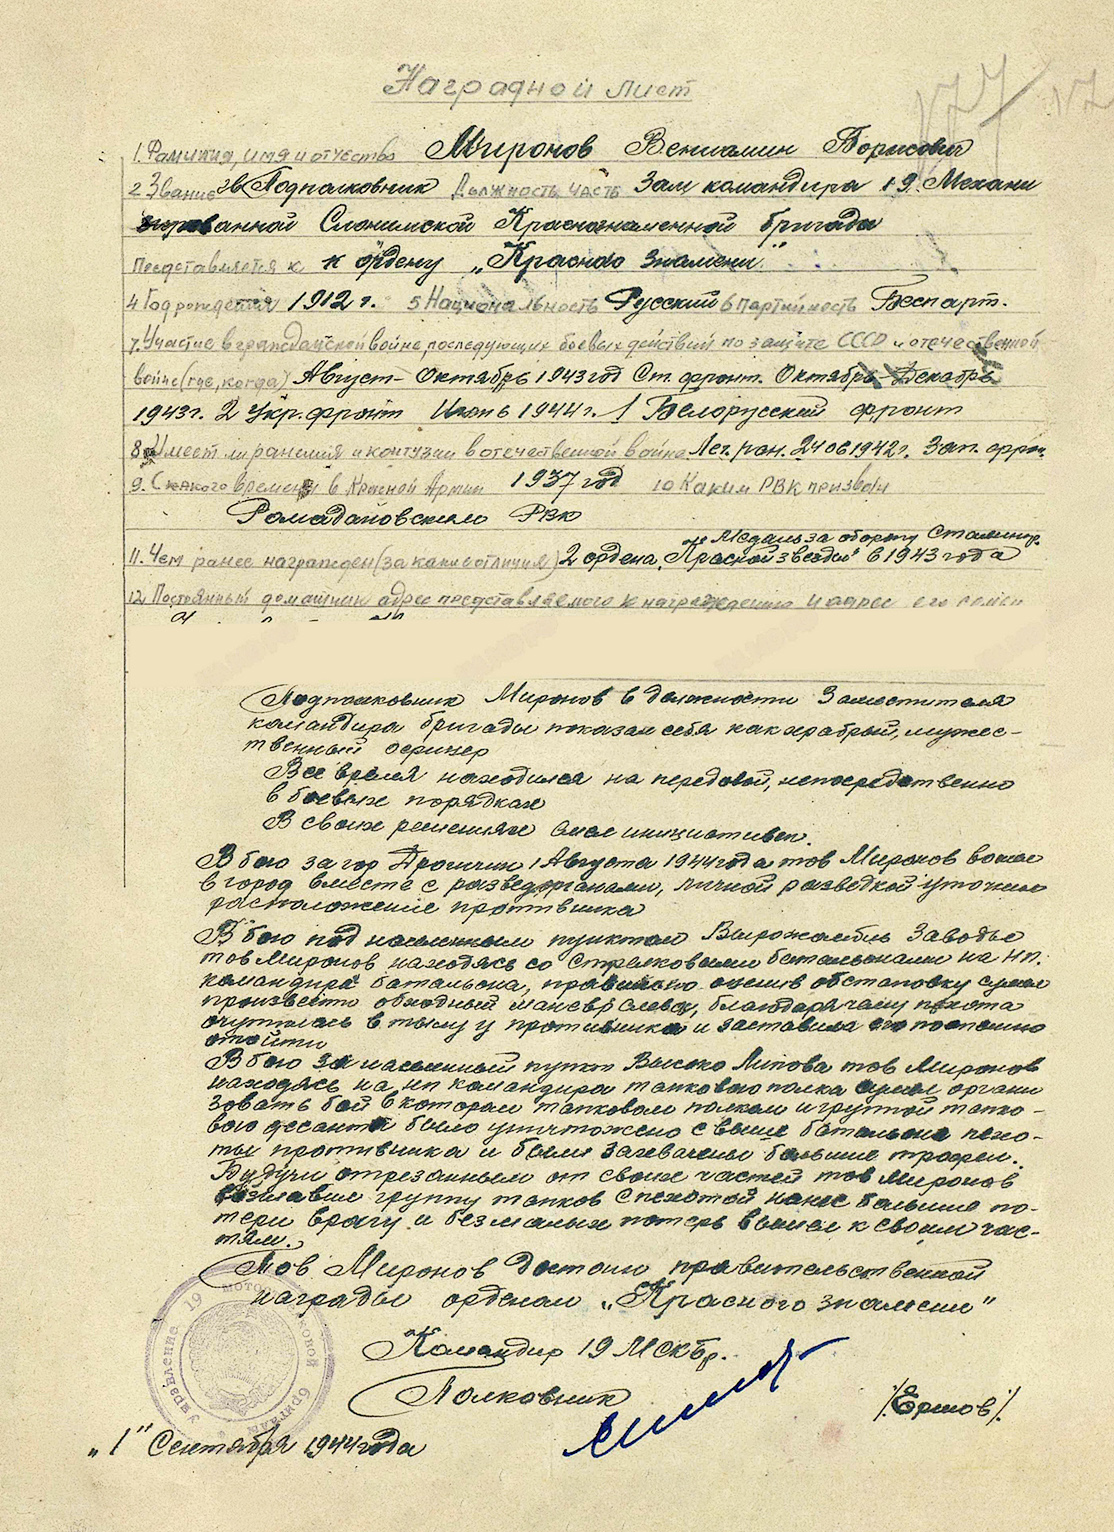 Наградной лист
1. Фамилия, имя и отчество Миронов Вениамин Борисович
2 Звание гв Подполковник Должность, часть Зам командира 19 Механи
зированной Слонимской Краснознаменной бригады
Представляется к к ордену „Красное Знамени"
4 Год рождения 1912 г. 5 Национальность Русский 6 партийность Беспарт.
7. Участие в гражданской войне, последующих боевых действий по защите СССР и отечественной
войне (где, когда) Август – Октябрь 1943 год Ст. фронт. Октябрь – Декабрь
1943 г. 2 Укр. фронт Июнь 1944 г. 1 Белорусский фронт
8. Имеет ли ранения и контузии в отечественной войне Лег. ран. 24 06 1942 г. Зап. фрон.
9. С какого времени в Красной Армии 1937 год 10 Каким РВК призван
Ромадановским РВК
Медаль за оборону Сталингр.
11. Чем ранее награжден (за какие отличия) 2 ордена „Красной звезды" в 1943 года
12 Постоянный домашний адрес представляемого к награждению и адрес его семьи
Подполковник Миронов в должности Заместителя
командира бригады показал себя как храбрый, мужес-
твенный офицер
Все время находился на передовой, непосредственно
в боевых порядках
В своих решениях смел инициативен.
В бою за гор Дрогичин 1 Августа 1944 года тов Миронов вошел
в город вместе с разведорганами, личной разведкой уточнил
расположение противника
В бою под населенным пунктом Заводы
тов Миронов находясь со Стрелковыми батальонами на НП.
командира батальона, правильно оценив обстановку сумел
произвести обходный маневр слева, благодаря чему пехота
очутилась в тылу у противника и заставила его поспешно
отойти
В бою за населенный пункт Высоко Липова тов Миронов
находясь на нп командира танкового полка сумел органи
зовать бой в котором танковым полком и группой танко-
вого десанта было уничтожено свыше батальона пехо-
ты противника и были захвачены большие трофеи.
Будучи отрезанным от своих частей тов Миронов
возглавив группу танков с пехотой нанес большие по-
тери врагу и без малых потерь вышел к своим час-
тям.
Тов Миронов достоин правительственной
награды орденом „Красного знамени"
Командир 19 МСКбр.
Полковник /Ершов/.
„1" Сентября 1944 года
Управление 19 мотострелковой бригады